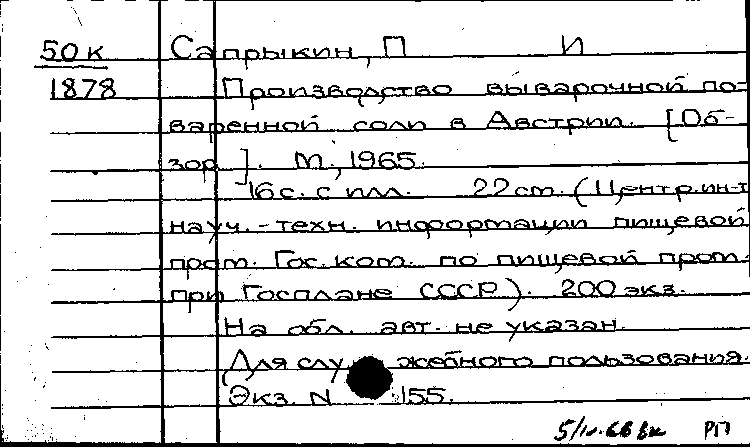 50к Сапрыкин, П И
1878 Производство выварочной по-
варенной соли в Австрии. [Об-
зор]. М., 1965.
16 с. с илл. 22 см. (Центр. ин-т
науч.-техн. информации пищевой
пром. Гос. ком. по пищевой пром.
при Госплане СССР). 200 экз.
На обл. авт. не указан.
(Для служебного пользования.
Экз. N 155.
РП